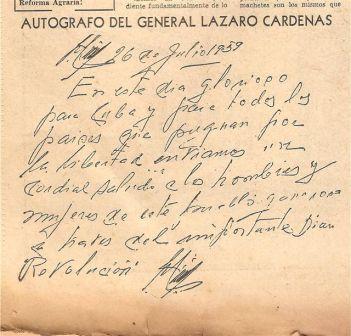 Reforma Agraria:
diente fundamentalmente de lo
machetes son los mismos que
AUTOGRAFO DEL GENERAL LAZARO CARDENAS
26 de Julio/959
En este dia glorioso
para Cuba y para todos los
paises que pugnan por
la libertad enviamos un
cordial saludo a los hombres y
mujeres de este pueblo generoso
a traves del importante Diario
Revolución